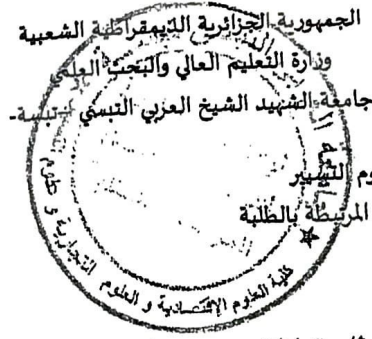 الجمهورية الجزائرية الديمقراطية الشعبية
وزارة التعليم العالي والبحث العلمي
جامعة الشهيد الشيخ العربي التبسي -تبسة-
وم التسيير
المرتبطة بالطلبة
كلية العلوم الإقتصادية و العلوم التجارية و علوم